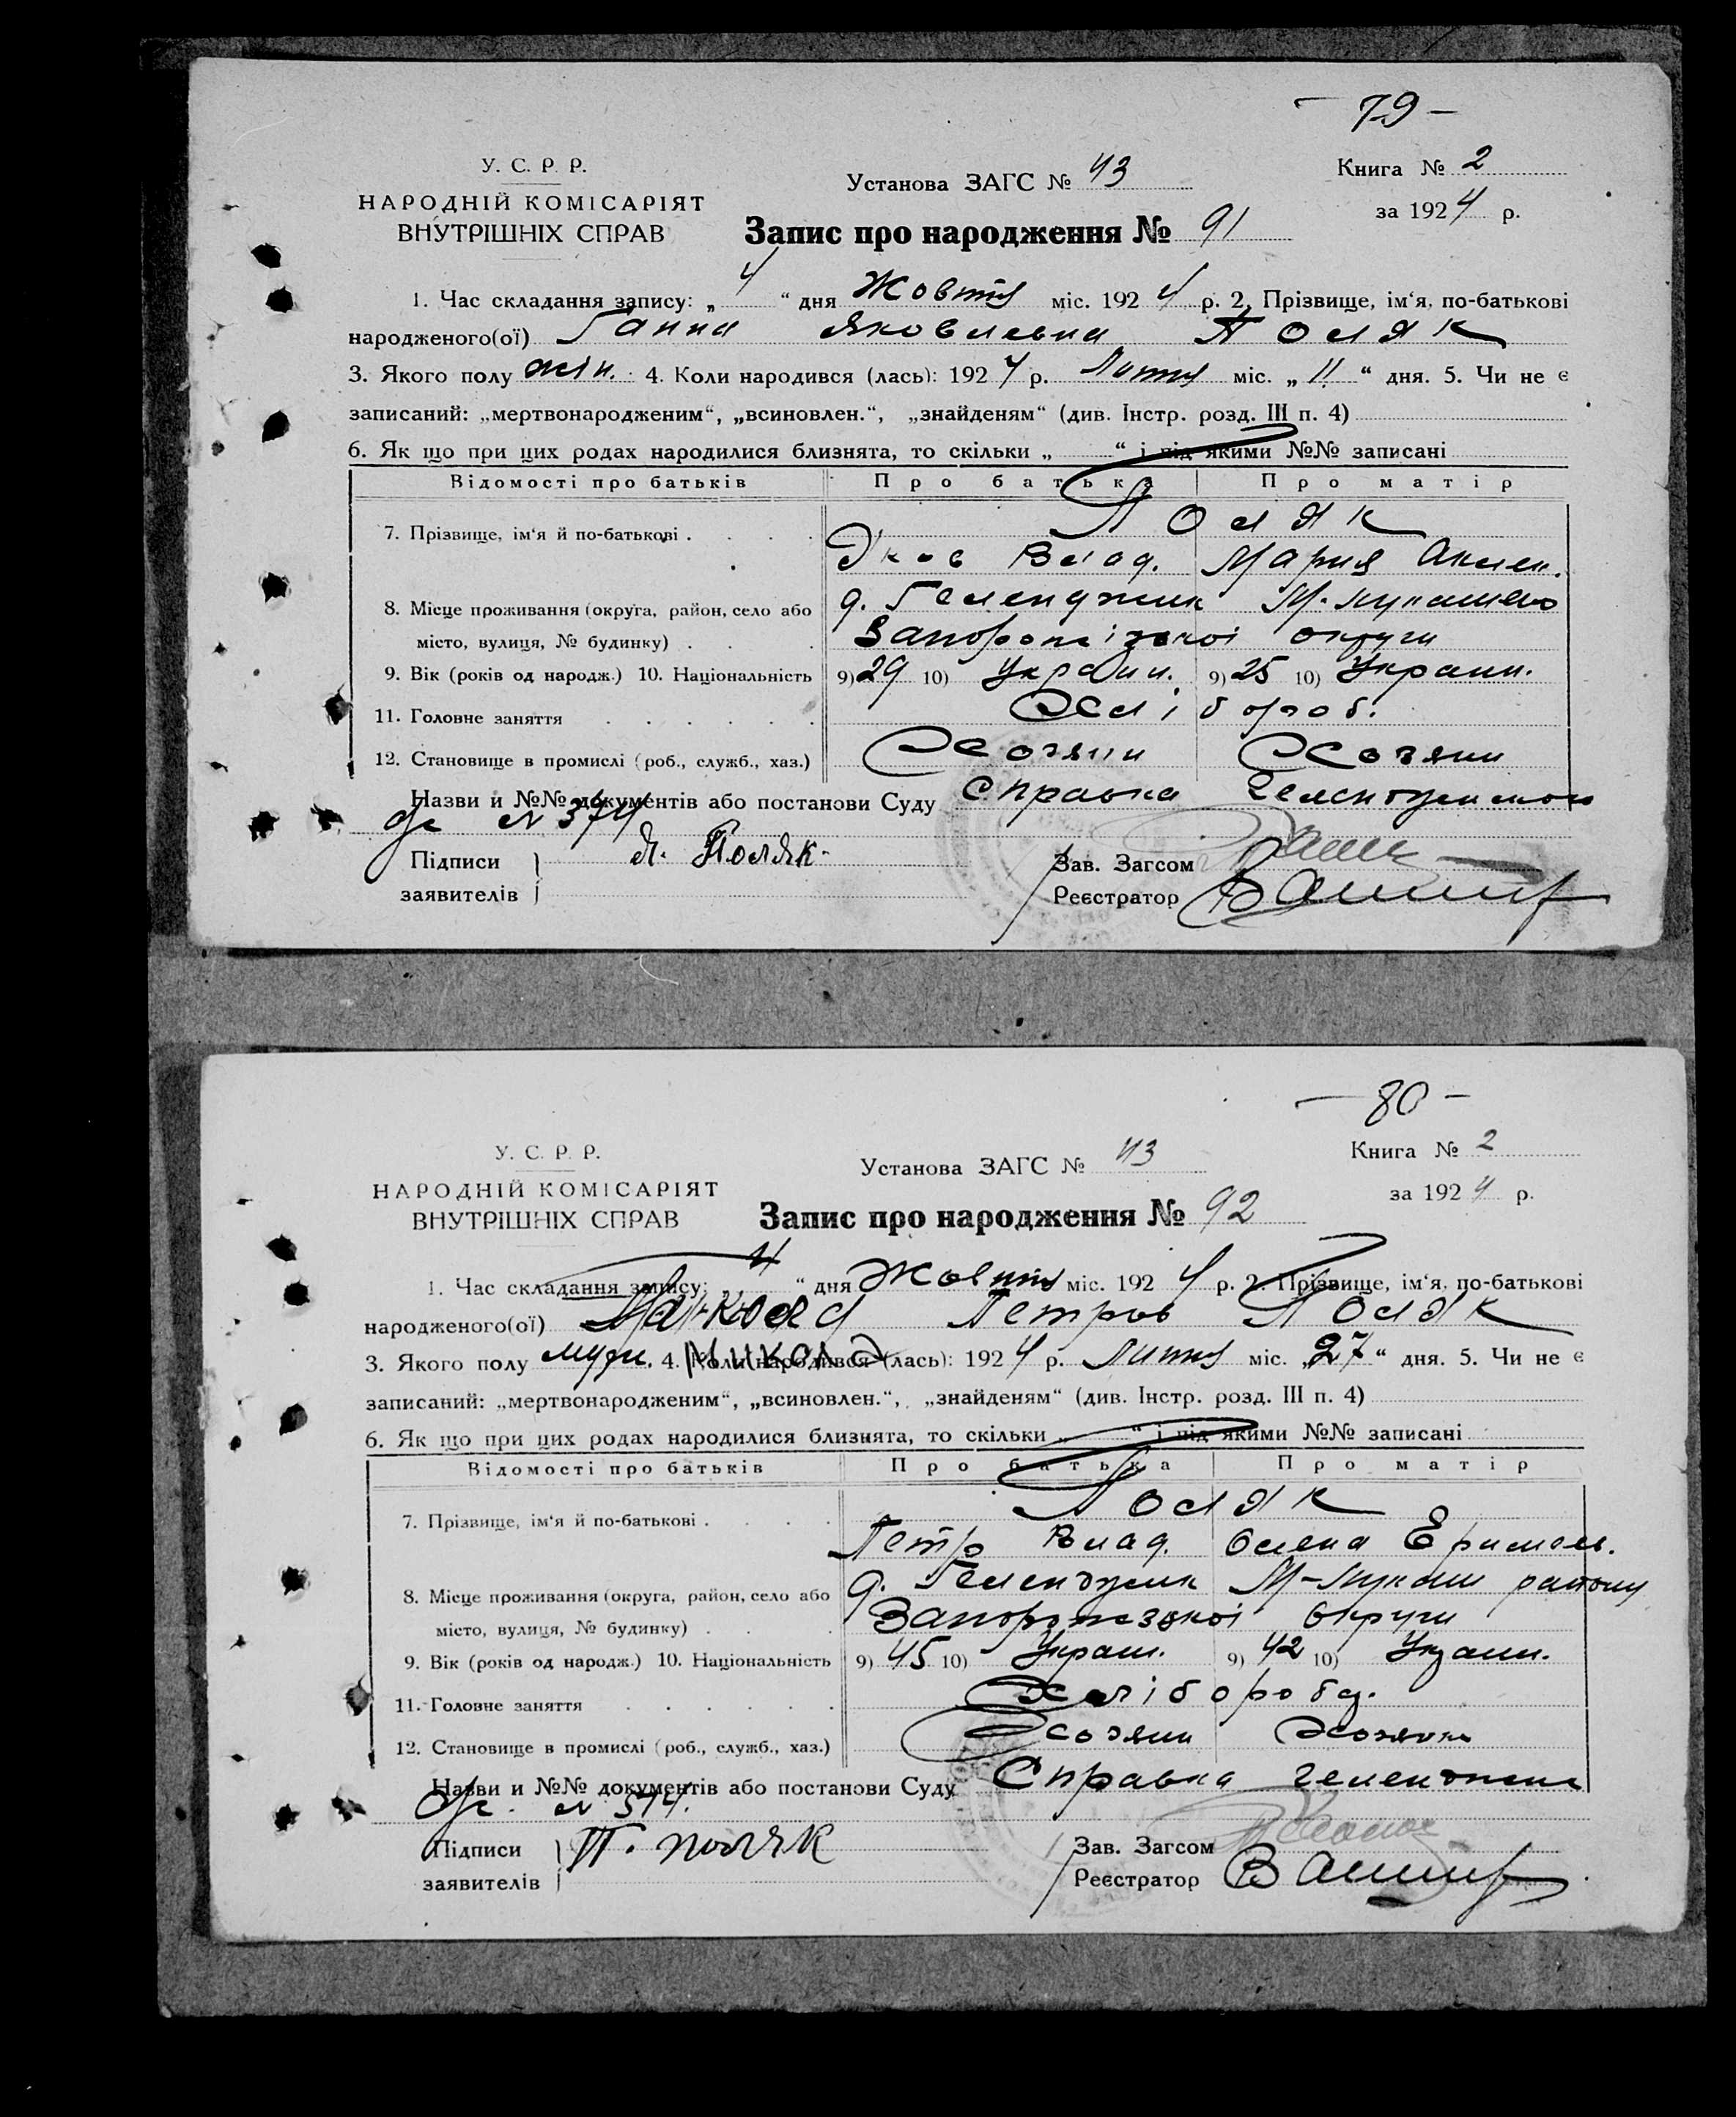 — 79 —
У. С. Р. Р.
НАРОДНІЙ КОМІСАРІЯТ
ВНУТРІШНІХ СПРАВ
Установа ЗАГС № 43
Книга № 2
за 1924 р.
Запис про народження № 91
1. Час складання запису: „ 4 “ дня Жовтня міс. 1924 р. 2. Прізвище, ім‘я, по-батькові
народженого(ої) Ганна Яковлевна Поляк
3. Якого полу жін. 4. Коли народився (лась): 1924 р. Лютня міс. „ 11 “ дня. 5. Чи не є
записаний: „мертвонародженим“, „всиновлен.“, „знайденям“ (див. Інстр. розд. III п. 4)
6. Як що при цих родах народилися близнята, то скільки „ “ і під якими №№ записані
Відомості про батьків Про батька Про матір
7. Прізвище, ім‘я й по-батькові . . . . Поляк
Яков Влад. Мария
8. Місце проживання (округа, район, село або д. Геленджик
місто, вулиця, № будинку) . . . округи
9. Вік (років од народж.) 10. Національність 9) 29 10) Украин. 9) 25 10) Украин.
11. Головне заняття . . . . . . Хлібороб.
12. Становище в промислі (роб., служб., хаз.) Хозяин Хозяин
Назви и №№ документів або постанови Суду Справка
№ 374
Підписи
заявителів
Я. Поляк
Зав. Загсом
Реєстратор
— 80 —
У. С. Р. Р.
НАРОДНІЙ КОМІСАРІЯТ
ВНУТРІШНІХ СПРАВ
Установа ЗАГС № 43
Книга № 2
за 1924 р.
Запис про народження № 92
1. Час складання запису: „ 4 “ дня Жовтня міс. 1924 р. 2. Прізвище, ім‘я, по-батькові
народженого(ої) Петров Поляк
Микола
3. Якого полу муж. 4. Коли народився (лась): 1924 р. Лютня міс. „ 27 “ дня. 5. Чи не є
записаний: „мертвонародженим“, „всиновлен.“, „знайденям“ (див. Інстр. розд. III п. 4)
6. Як що при цих родах народилися близнята, то скільки „ “ і під якими №№ записані
Відомості про батьків Про батька Про матір
7. Прізвище, ім‘я й по-батькові . . . . Поляк
Петр Влад. Олена
8. Місце проживання (округа, район, село або д. Геленджик району
місто, вулиця, № будинку) . . . округи
9. Вік (років од народж.) 10. Національність 9) 45 10) Украин. 9) 42 10) Украин.
11. Головне заняття . . . . . . Хлібороб
12. Становище в промислі (роб., служб., хаз.) Хозяин Хозяин
Назви и №№ документів або постанови Суду Справка
Підписи
заявителів
П. поляк
Зав. Загсом
Реєстратор